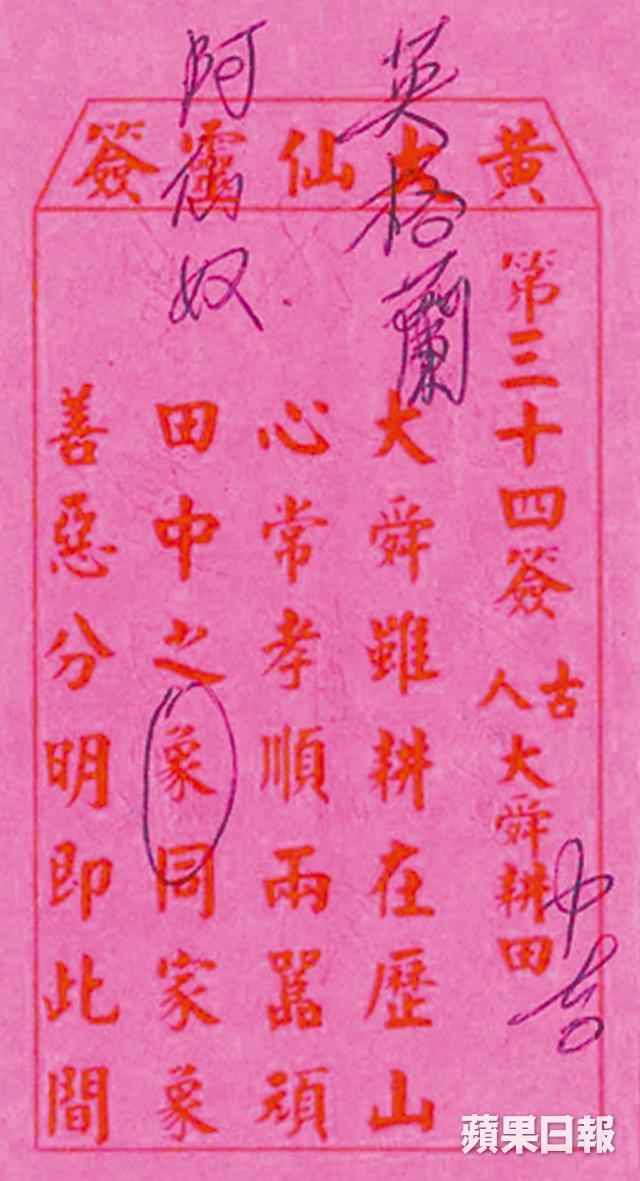 英格蘭
阿奴
黄大仙靈簽
第三十四簽 古人大舜耕田
中吉
大舜雖耕在歷山
心常孝順兩嚚頑
田中之象同家象
善惡分明即此間
蘋果日報